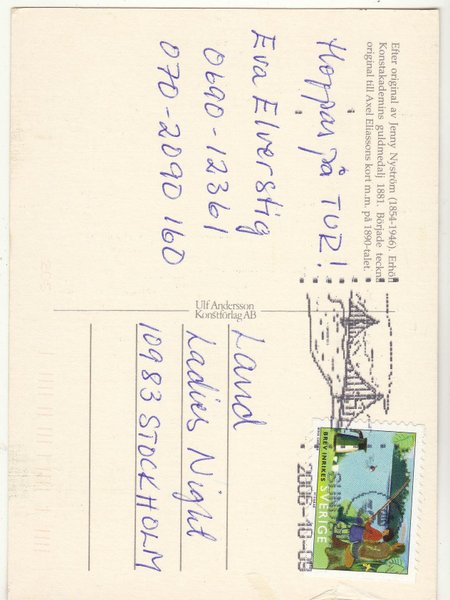 Efter original av Jenny Nyström (1854-1946). Erhöll
Konstakademins guldmedalj 1881. Började teckn
original till Axel Eliassons kort m.m. på 1890-talet.
Hoppas på TUR!
Eva Elverstig
0690-12361
070-2090 160
Ulf Andersson
Konstförlag AB
Land
Ladies Night
109 83 STOCKHOLM
BREV INRIKES SVERIGE
2006-10-09